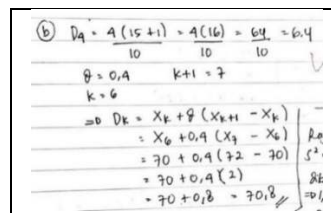 (b) D4 = 4(15+1)/10 = 4(16)/10 = 64/10 = 6.4
g = 0,4 k+1 = 7
k = 6
=> Dk = Xk + g (Xk+1 - Xk)
= X6 + 0,4 (X7 - X6)
= 70 + 0,4 (72 - 70)
= 70 + 0,4 (2)
= 70 + 0,8 = 70,8 //